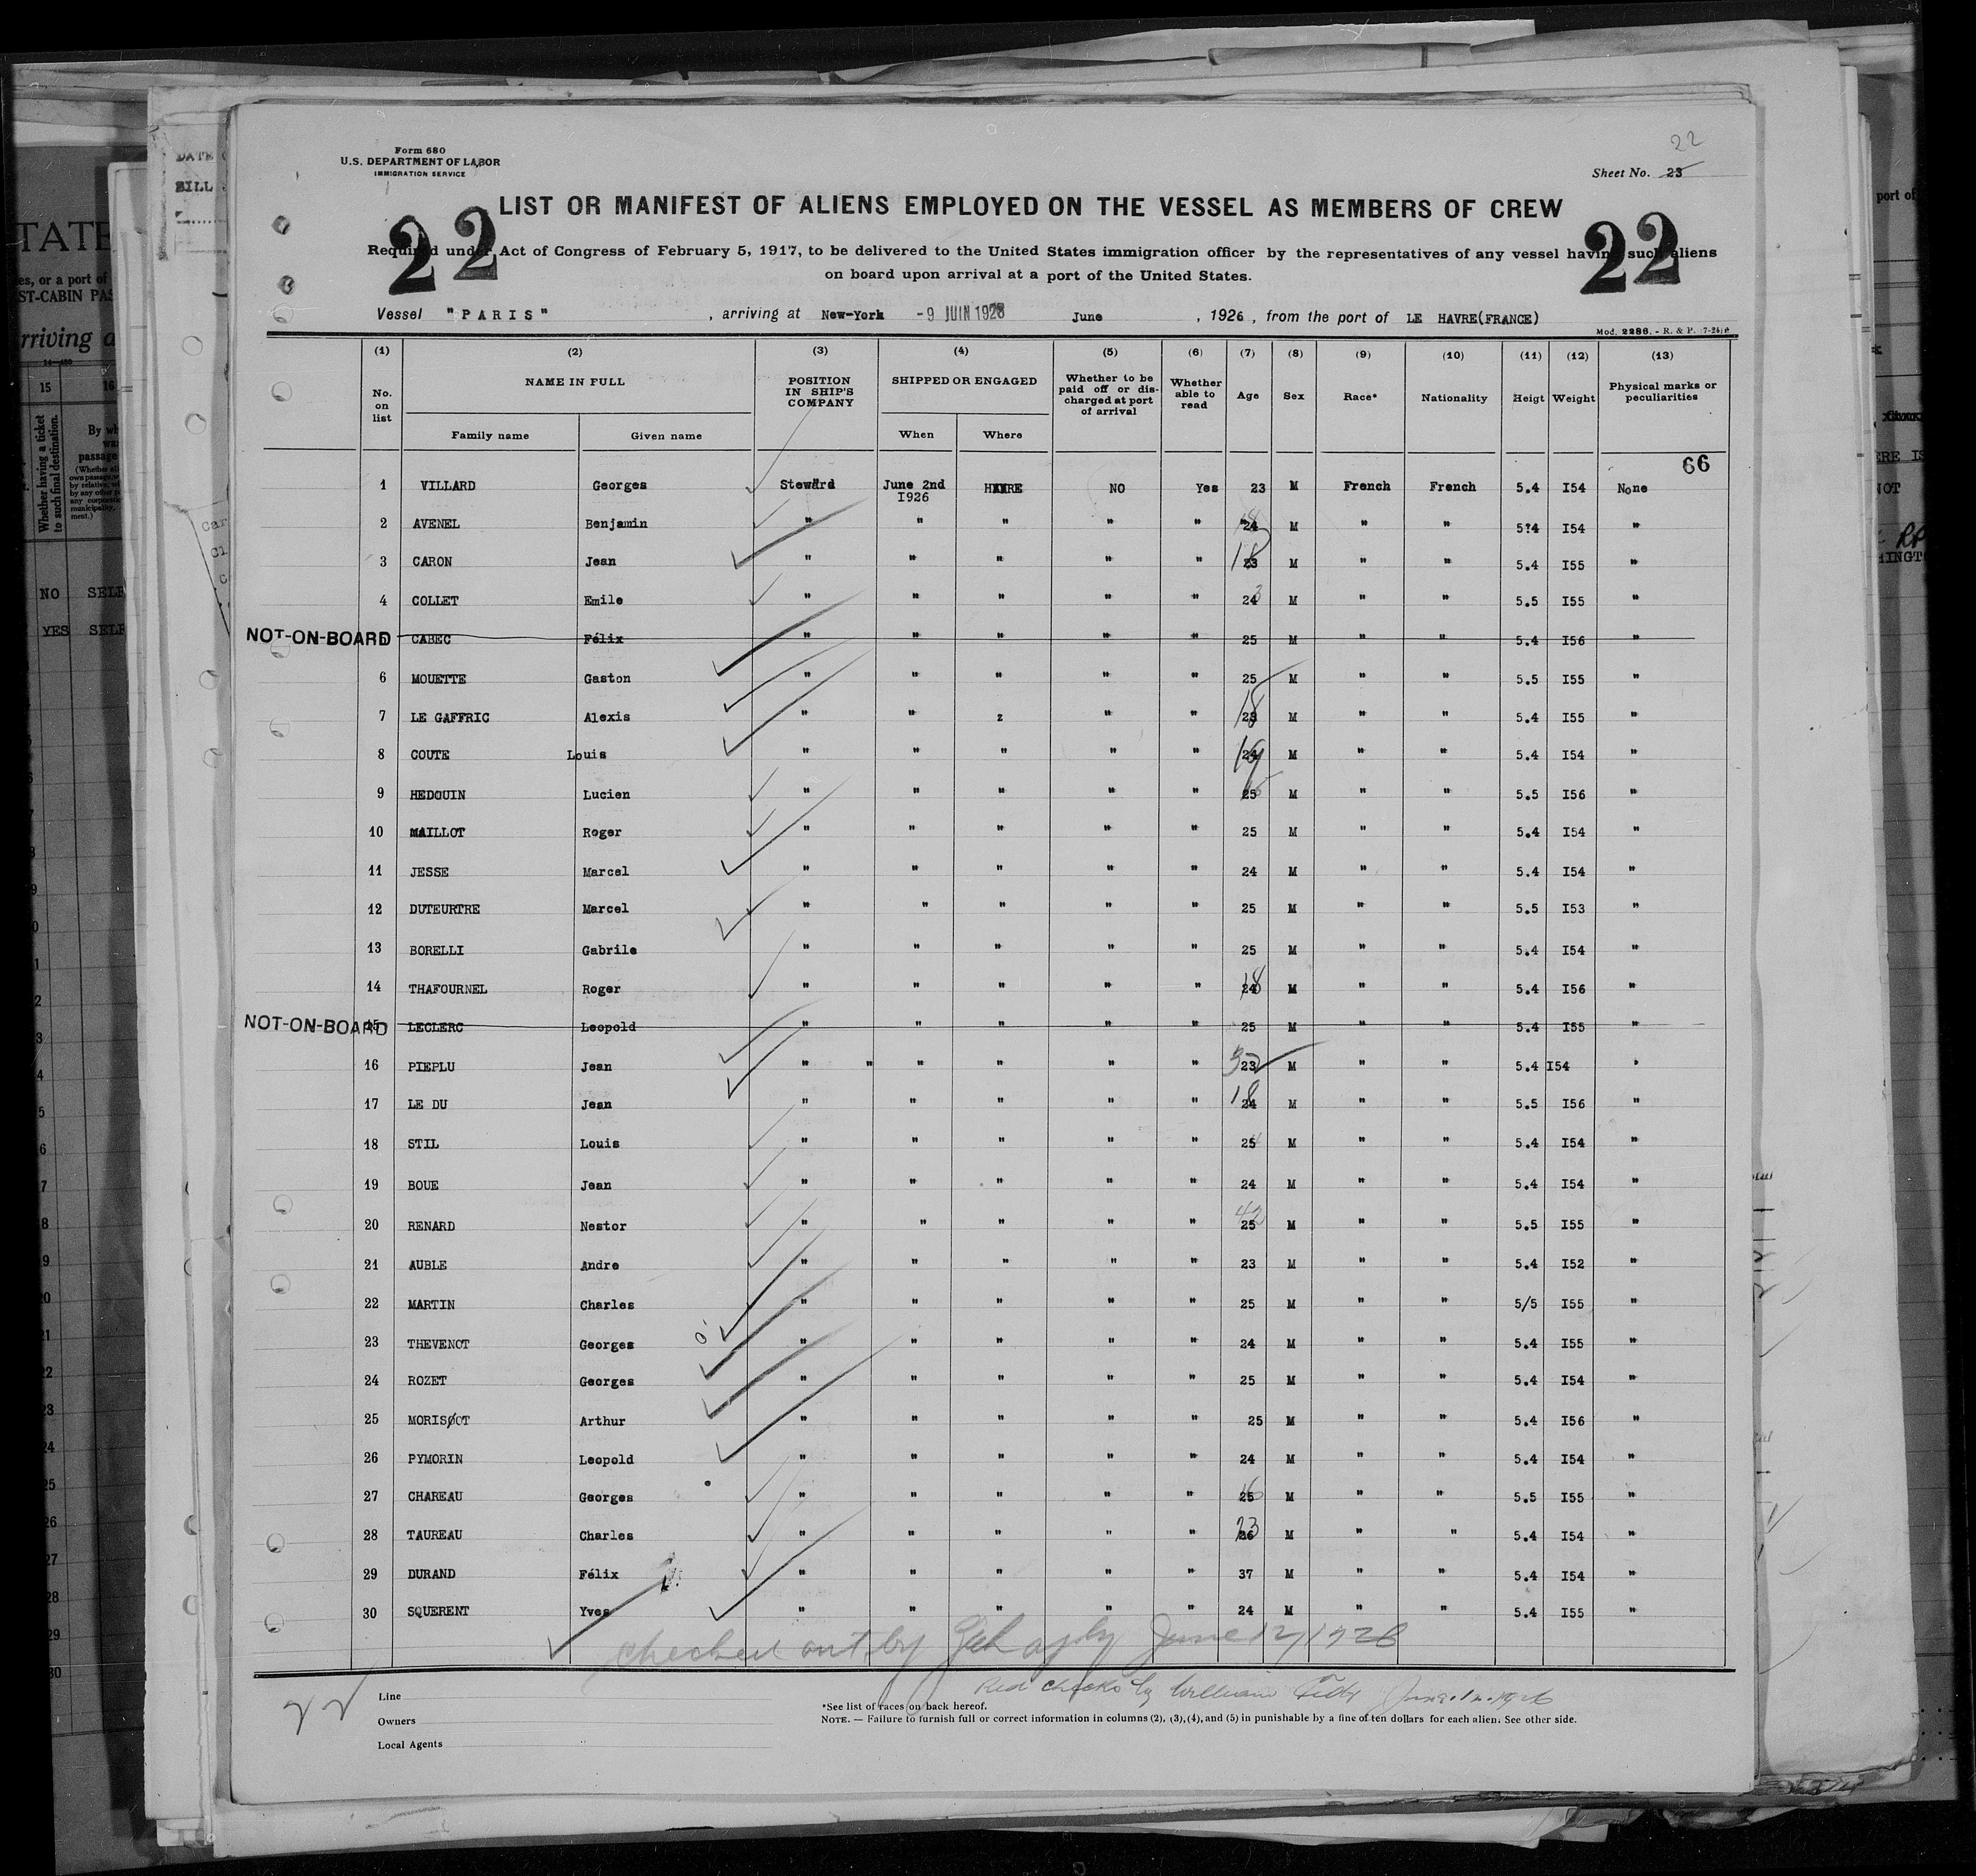 22
Form 680
U.S. DEPARTMENT OF LABOR
IMMIGRATION SERVICE
Sheet No. 23
LIST OR MANIFEST OF ALIENS EMPLOYED ON THE VESSEL AS MEMBERS OF CREW
22 22
Required under Act of Congress of February 5, 1917, to be delivered to the United States immigration officer by the representatives of any vessel having such aliens
on board upon arrival at a port of the United States.
Vessel "PARIS" , arriving at New-York -9 JUIN 1926 June , 1926 , from the port of LE HAVRE(FRANCE)
Mod. 2286. - R. & P.
(1) (2) (3) (4) (5) (6) (7) (8) (9) (10) (11) (12) (13)
No. on list NAME IN FULL POSITION IN SHIP'S COMPANY SHIPPED OR ENGAGED Whether to be paid off or discharged at port of arrival Whether able to read Age Sex Race* Nationality Heigt Weight Physical marks or peculiarities
Family name Given name When Where
66
1 VILLARD Georges Steward June 2nd I926 HAVRE NO Yes 23 M French French 5.4 I54 None
2 AVENEL Benjamin " " " " " 24 M " " 5?4 I54 "
3 CARON Jean " " " " " 18 23 M " " 5.4 I55 "
4 COLLET Emile " " " " " 24 M " " 5.5 I55 "
NOT-ON-BOARD CABEC Félix " " " " " 25 M " " 5.4 I56 "
6 MOUETTE Gaston " " " " " 25 M " " 5.5 I55 "
7 LE GAFFRIC Alexis " " z " " 18 23 M " " 5.4 I55 "
8 COUTE Louis " " " " " 19 24 M " " 5.4 I54 "
9 HEDOUIN Lucien " " " " " 25 M " " 5.5 I56 "
10 MAILLOT Roger " " " " " 25 M " " 5.4 I54 "
11 JESSE Marcel " " " " " 24 M " " 5.4 I54 "
12 DUTEURTRE Marcel " " " " " 25 M " " 5.5 I53 "
13 BORELLI Gabrile " " " " " 25 M " " 5.4 I54 "
14 THAFOURNEL Roger " " " " " 18 24 M " " 5.4 I56 "
NOT-ON-BOARD 15 LECLERC Leopold " " " " " 25 M " " 5.4 I55 "
16 PIEPLU Jean " " " " " " 32 23 M " " 5.4 I54 "
17 LE DU Jean " " " " " 18 24 M " " 5.5 I56 "
18 STIL Louis " " " " " 25 M " " 5.4 I54 "
19 BOUE Jean " " " " " 24 M " " 5.4 I54 "
20 RENARD Nestor " " " " " 42 25 M " " 5.5 I55 "
21 AUBLE Andre " " " " " 23 M " " 5.4 I52 "
22 MARTIN Charles " " " " " 25 M " " 5/5 I55 "
23 THEVENOT Georges " " " " " 24 M " " 5.4 I55 "
24 ROZET Georges " " " " " 25 M " " 5.4 I54 "
25 MORISOOT Arthur " " " " " 25 M " " 5.4 I56 "
26 PYMORIN Leopold " " " " " 24 M " " 5.4 I54 "
27 CHAREAU Georges " " " " " 25 M " " 5.5 I55 "
28 TAUREAU Charles " " " " " 23 26 M " " 5.4 I54 "
29 DURAND Félix " " " " " 37 M " " 5.4 I54 "
30 SQUERENT Yves " " " " " 24 M " " 5.4 I55 "
checked out by June 12/1926
Red checks by William
Line
Owners
Local Agents
*See list of races on back hereof.
NOTE. — Failure to furnish full or correct information in columns (2), (3), (4), and (5) in punishable by a fine of ten dollars for each alien. See other side.